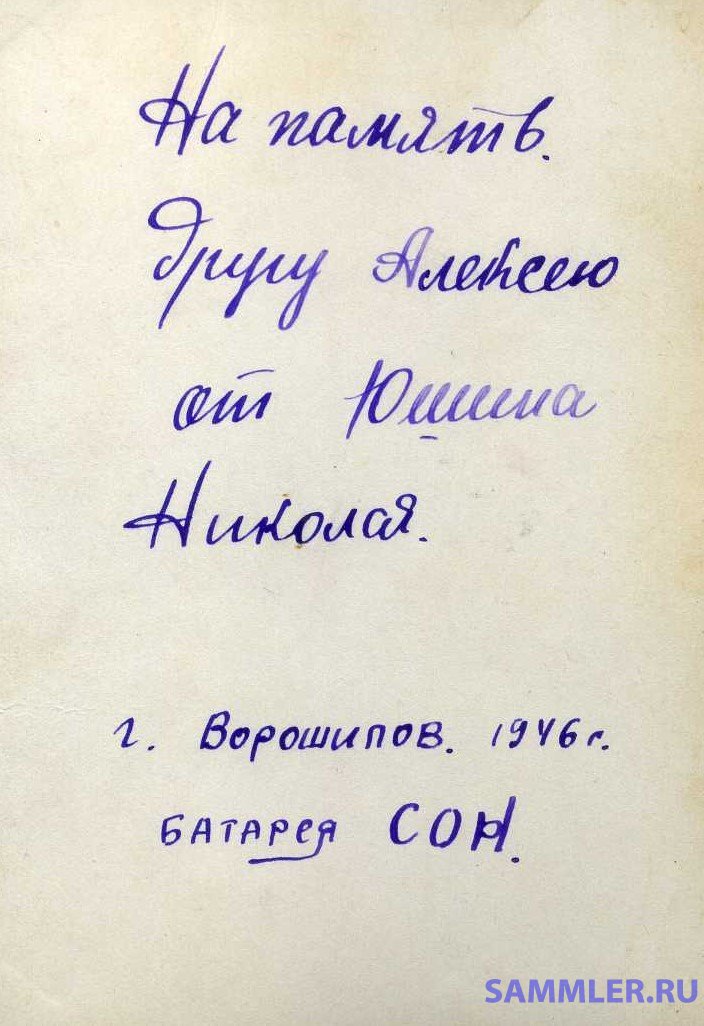 На память.
другу Алексею
от Юшина
Николая.
г. Ворошилов. 1946 г.
БАТАРЕЯ СОН.
SAMMLER.RU